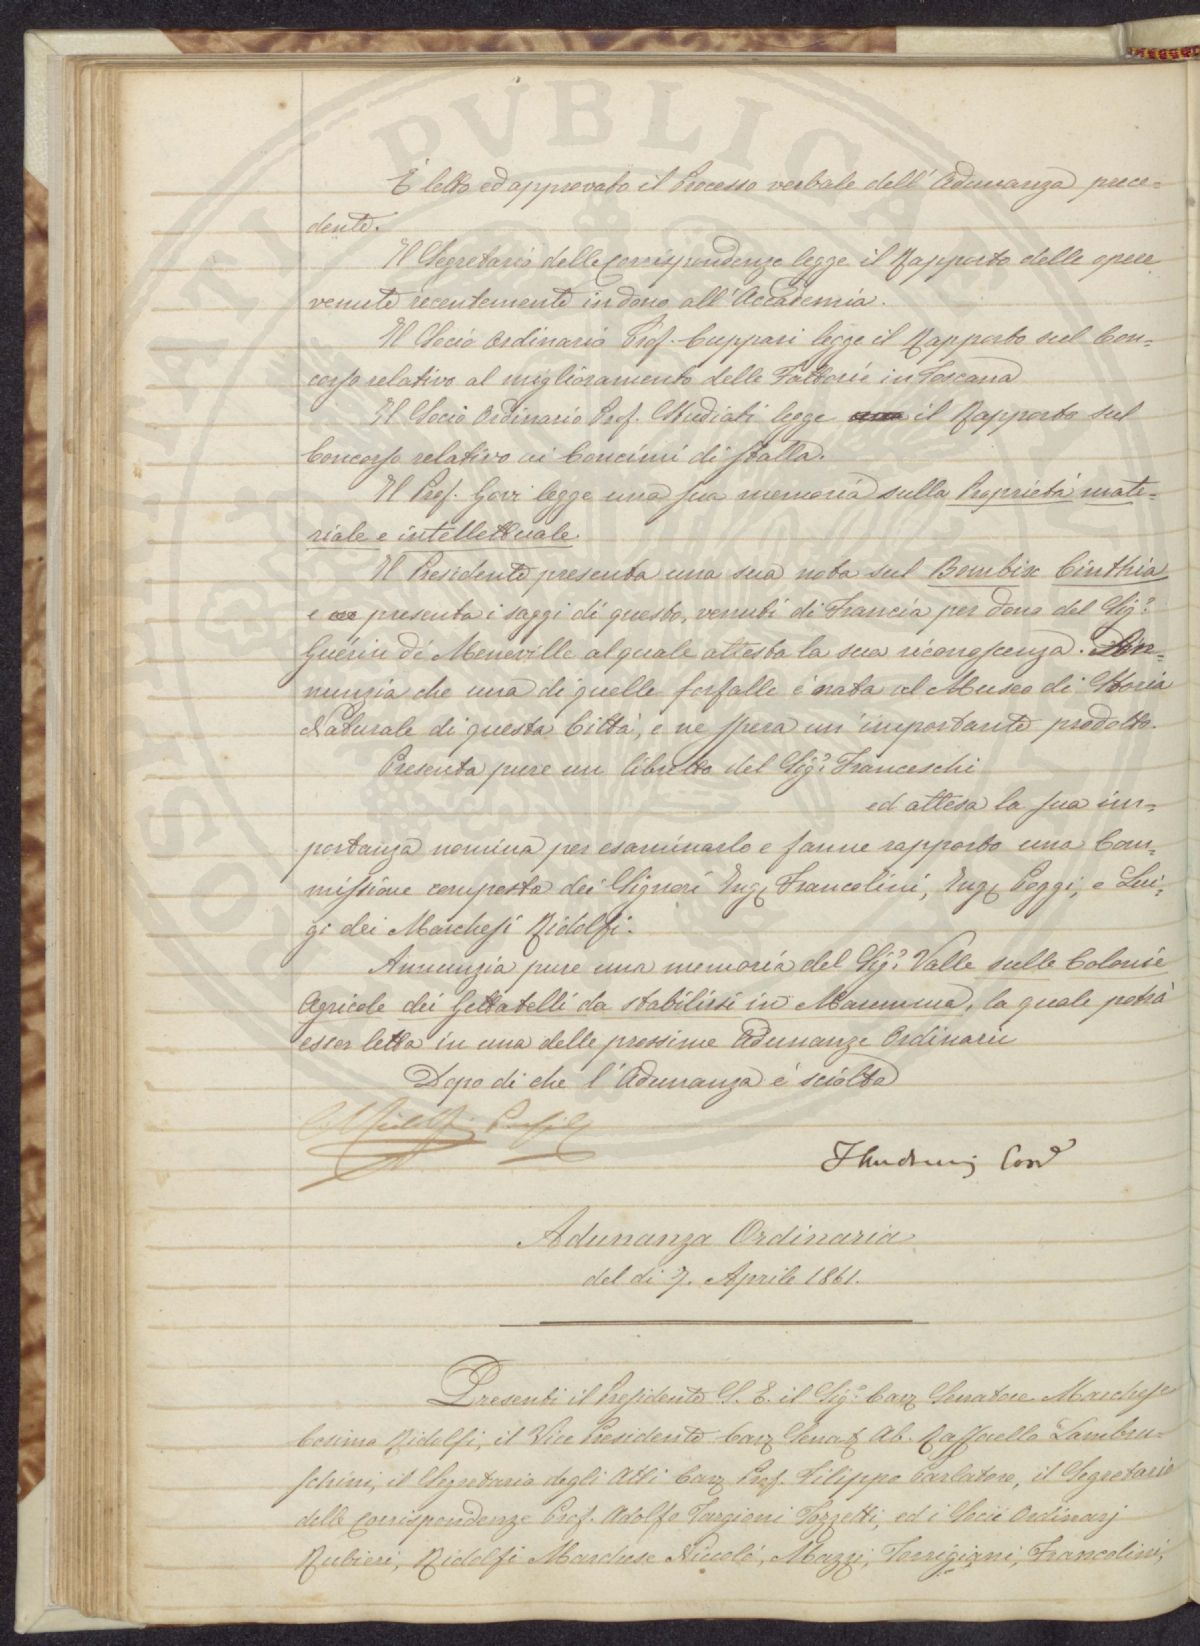 È letto ed approvato il Processo verbale dell'Adunanza prece=
dente.
Il Segretario delle Corrispondenze legge il Rapporto delle opere
venute recentemente in dono all'Accademia.
Il Socio Ordinario Prof. Cuppari legge il Rapporto sul Con=
corso relativo al miglioramento delle Fattorie in Toscana
Il Socio Ordinario Prof. Studiati legge il Rapporto sul
Concorso relativo ai Concimi di stalla.
Il Prof. Govi legge una sua memoria sulla Proprietà mate=
riale e intellettuale.
Il Presidente presenta una sua nota sul Bombix Cinthia
e presenta i saggi di questo, venuti di Francia per dono del Sig.r
Guérin de Meneville al quale attesta la sua riconoscenza. An=
nunzia che una di quelle farfalle è nata al Museo di Storia
Naturale di questa Città, e ne spera un importante prodotto.
Presenta pure un libretto del Sig.r Franceschi
ed attesa la sua im=
portanza nomina per esaminarlo e farne rapporto una Com=
missione composta dei Signori Ing. Francolini, Ing. Poggi, e Lui=
gi dei Marchesi Ridolfi.
Annunzia pure una memoria del Sig.r Valle sulle Colonie
Agricole dei Gettatelli da stabilirsi in Maremma, la quale potrà
esser letta in una delle prossime Adunanze Ordinarie
Dopo di che l'Adunanza è sciolta
Ridolfi
Adunanza Ordinaria
del di 7. Aprile 1861.
Presenti il Presidente S. E. il Sig.r Cav. Senatore Marchese
Cosimo Ridolfi, il Vice Presidente Cav. Senat. Ab. Raffaello Lambru=
schini, il Segretario degli Atti Cav. Prof. Filippo Parlatore, il Segretario
delle Corrispondenze Prof. Adolfo Targioni Tozzetti, ed i Socii Ordinarj
Rubieri, Ridolfi Marchese Niccolò, Mazzi, Torrigiani, Francolini,